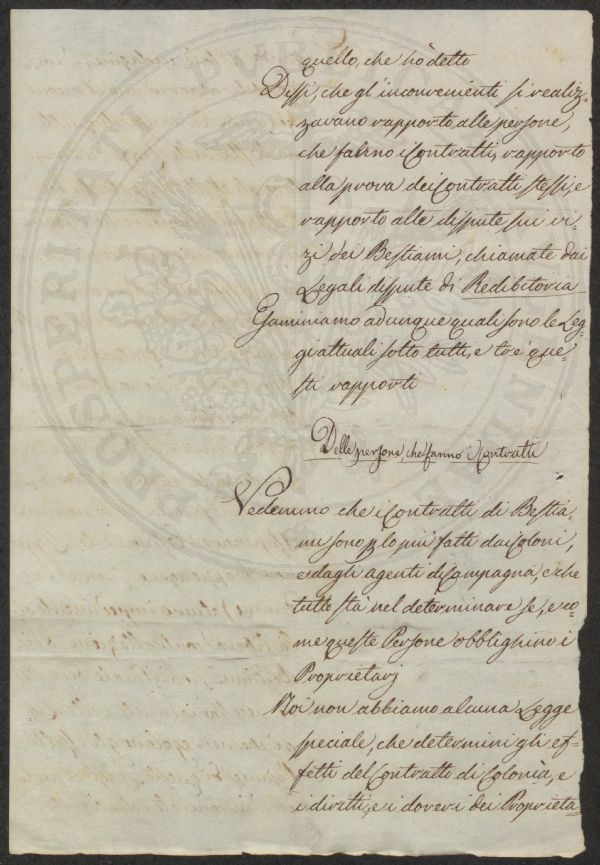 quello, che hò detto
Dissi, che gl'inconvenienti si realiz-
zavano rapporto alle persone,
che fanno i Contratti, rapporto
alla prova dei Contratti stessi, e
rapporto alle dispute sui vi-
zi dei Bestiami, chiamate dai
Legali dispute di Redibitoria
Esaminiamo adunque quali sono le Leg-
gi attuali sotto tutti, e tre que-
sti rapporti
Delle persone, che fanno i Contratti
Vedemmo che i Contratti di Bestia-
mi sono p lo più fatti dai Coloni,
e dagli agenti di Campagna, e che
tutto stà nel determinare se, e co-
me queste Persone obblighino i
Proprietarj
Noi non abbiamo alcuna Legge
speciale, che determini gli ef-
fetti del Contratto di Colonìa, e
i diritti, e i doveri dei Proprieta